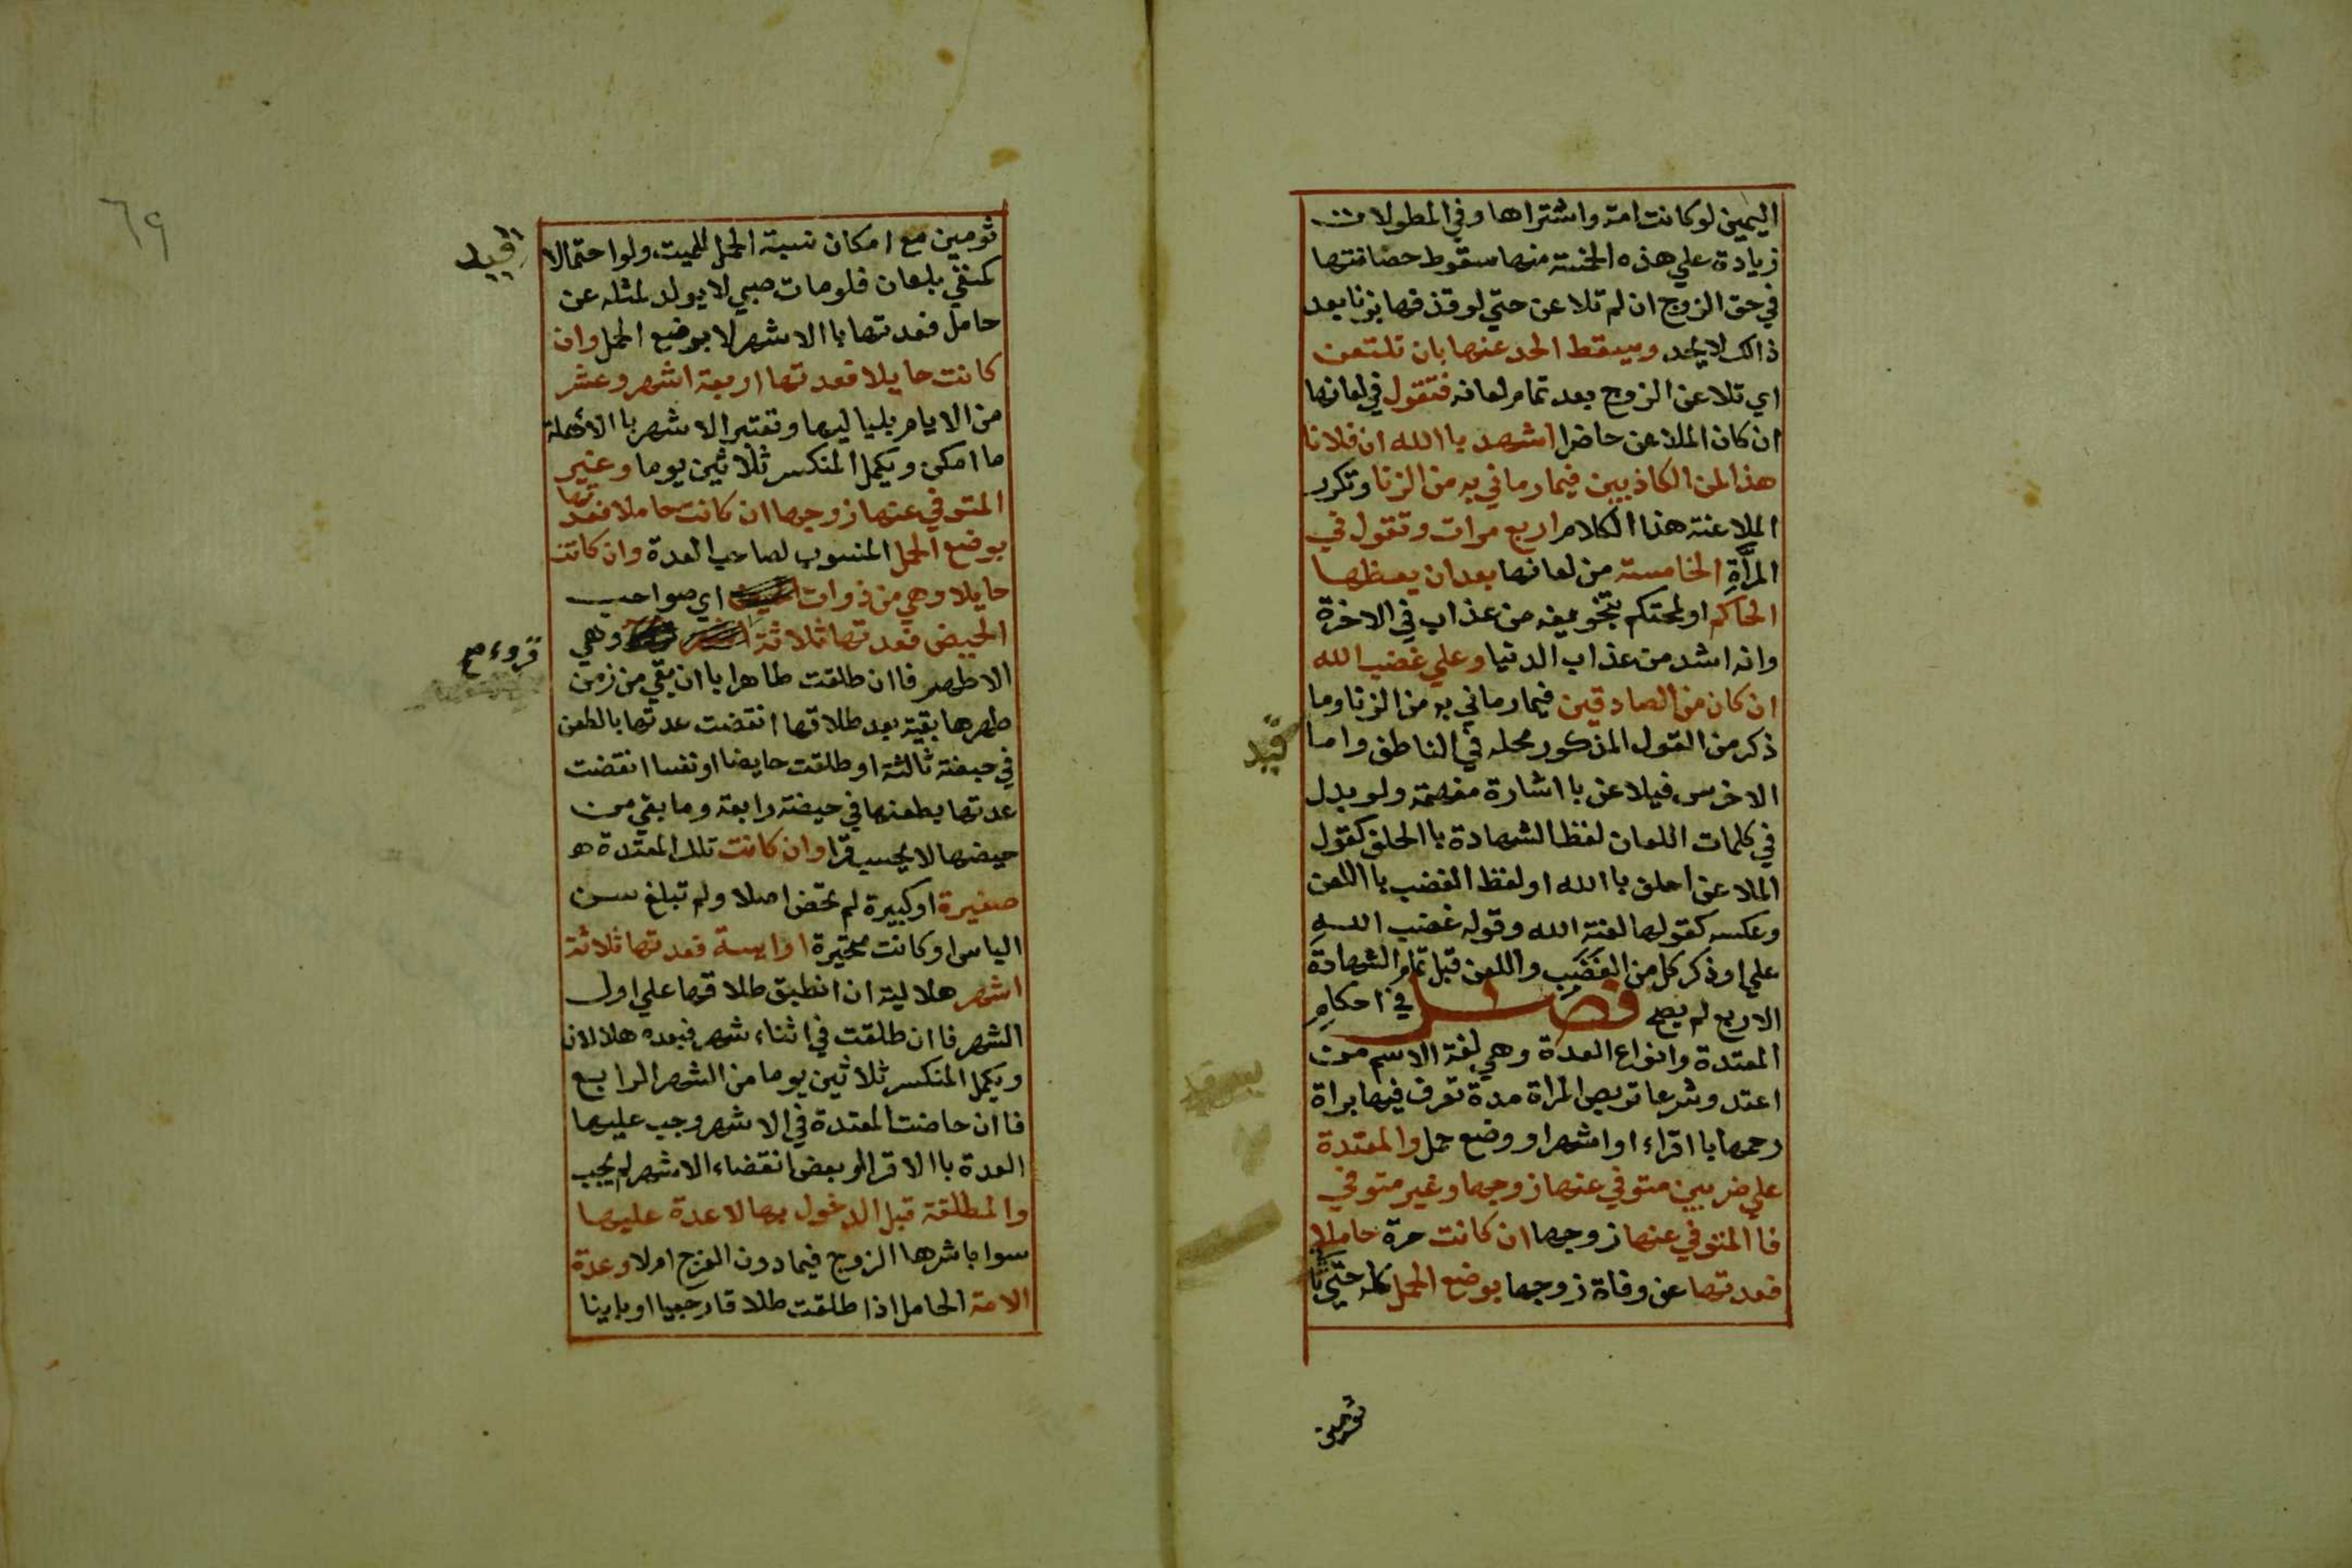 اليمين لو كانت امة واشتراها وفي المطولات
زيادة علي هذه الخمسة منها سقوط حضانتها
في حق الزوج ان لم تلاعن حتي لو قذفها بزنا بعد
ذالك لا يحد ويسقط الحد عنها بان تلتعن
اي تلاعن الزوج بعد تمام لعانه فتقول في لعانها
ان كان الملاعن حاضرا اشهد باالله ان فلانا
هذا لمن الكاذبين فيما رماني به من الزنا وتكرر
الملاعنة هذا الكلام اربع مرات وتقول في
المرأة الخامسة من لعانها بعد ان يعظها
الحاكم او لمحتكم بتخويفه من عذاب في الاخرة
وانه اشد من عذاب الدنيا وعلي غضب الله
ان كان من الصادقين فيما رماني به من الزنا وما
ذكر من القول المذكور محله في الناطق واما
الاخرس فيلاعن بااشارة مفهمة ولو بدل
في كلمات اللعان لفظ الشهادة باالحلف كقول
الملاعن احلف باالله او لفظ الغضب باللعن
وعكسه كقولها لعنة الله وقوله غضب الله
علي او ذكر كل من الغضب واللعن قبل تمام الشهادة
الاربع لم يصح فصل في احكام
المعتدة وانواع العدة وهي لغة الاسم من
اعتد وشرعا تربص المراة مدة تعرف فيها براة
رحمها بااقراء او اشهر او وضع حمل والمعتدة
علي ضربين متوفي عنها زوجها وغير متوفي
فاالمتوفي عنها زوجها ان كانت حرة حاملا
فعدتها عن وفاة زوجها بوضع الحمل كله حتي ثا
قيد
تومين
٦٩
تومين مع امكان نسبة الحمل للميت ولو احتمالا
كمنفي بلعان فلو مات صبي لا يولد لمثله عن
حامل فعدتها باالاشهر لا بوضع الحمل وان
كانت حايلا فعدتها اربعة اشهر وعشر
من الايام بلياليها وتعتبر الاشهر باالاهلة
ما امكن ويكمل المنكسر ثلاثين يوما وغير
المتوفي عنها زوجها ان كانت حاملا فعدتها
بوضع الحمل المنسوب لصاحب العدة وان كانت
حايلا وهي من ذوات اي صواحب
الحيض فعدتها ثلاثة وهي
الاطهر فاان طلقت طاهرا باان بقي من زمن
طهرها بقية بعد طلاقها انقضت عدتها بالطعن
في حيضة ثالثة او طلقت حايضا او نفسا انقضت
عدتها بطعنها في حيضة رابعة وما بقي من
حيضها لا يحسب قرا وان كانت تلك المعتدة
صغيرة او كبيرة لم تحض اصلا ولم تبلغ سن
الياس او كانت متحيرة او ايسة فعدتها ثلاثة
اشهر هلالية ان انطبق طلاقها علي اول
الشهر فاان طلقت في اثناء شهر فبعده هلالان
ويكمل المنكسر ثلاثين يوما من الشهر الرابع
فاان حاضت المعتدة في الاشهر وجب عليها
العدة باالاقرا او بعض انقضاء الاشهر لم يجب
والمطلقة قبل الدخول بها لا عدة عليها
سوا باشرها الزوج فيما دون الفرج ام لا وعدة
الامة الحامل اذا طلقت طلاقا رجعيا او باينا
قيد
قروء صح